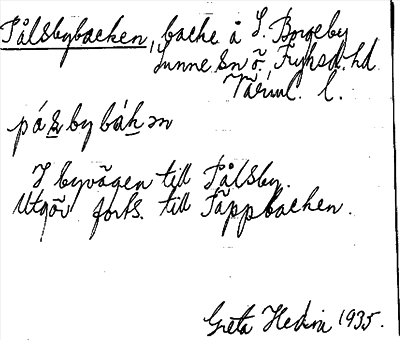 Pålsbybacken, backe å S. Borgeby
Sunne sn ö. Fryksd. hd.
Värml. l.
på̱sbybákɔn
I byvägen till Pålsby.
Utgör forts. till Täppbacken.
Greta Hedin 1935.